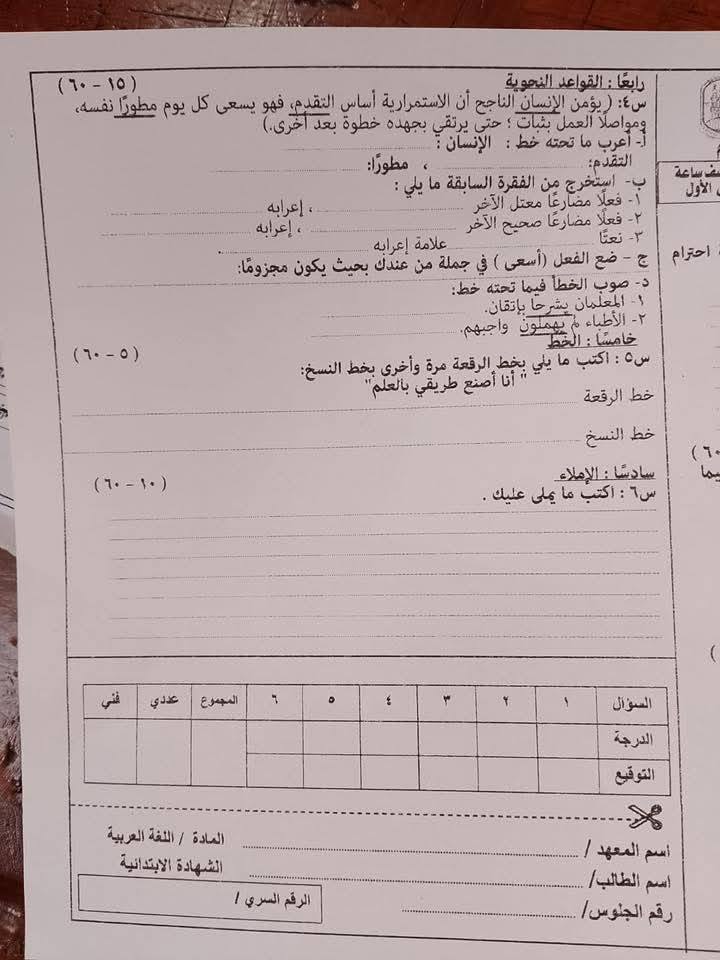 رابعًا : القواعد النحوية
( ١٥ - ٦٠ )
س٤: ( يؤمن الإنسان الناجح أن الاستمرارية أساس التقدم، فهو يسعى كل يوم مطورًا نفسه،
ومواصلًا العمل بثبات ؛ حتى يرتقي بجهده خطوة بعد أخرى.)
أ- أعرب ما تحته خط : الإنسان :
التقدم: ، مطورًا:
ب- استخرج من الفقرة السابقة ما يلي :
١- فعلًا مضارعًا معتل الآخر ، إعرابه
٢- فعلًا مضارعًا صحيح الآخر ، إعرابه
٣- نعتًا علامة إعرابه
ج - ضع الفعل (أسعى ) في جملة من عندك بحيث يكون مجزومًا:
د- صوب الخطأ فيما تحته خط:
١- المعلمان يشرحا بإتقان.
٢- الأطباء لم يهملون واجبهم.
خامسًا : الخط
( ٥ - ٦٠ )
س٥ : اكتب ما يلي بخط الرقعة مرة وأخرى بخط النسخ:
" أنا أصنع طريقي بالعلم"
خط الرقعة
خط النسخ
سادسًا : الإملاء
( ١٠ - ٦٠ )
س٦ : اكتب ما يملى عليك .
السؤال ١ ٢ ٣ ٤ ٥ ٦ المجموع عددي فني
الدرجة
التوقيع
اسم المعهد /
المادة / اللغة العربية
اسم الطالب/
الشهادة الابتدائية
رقم الجلوس/
الرقم السري /
احترام